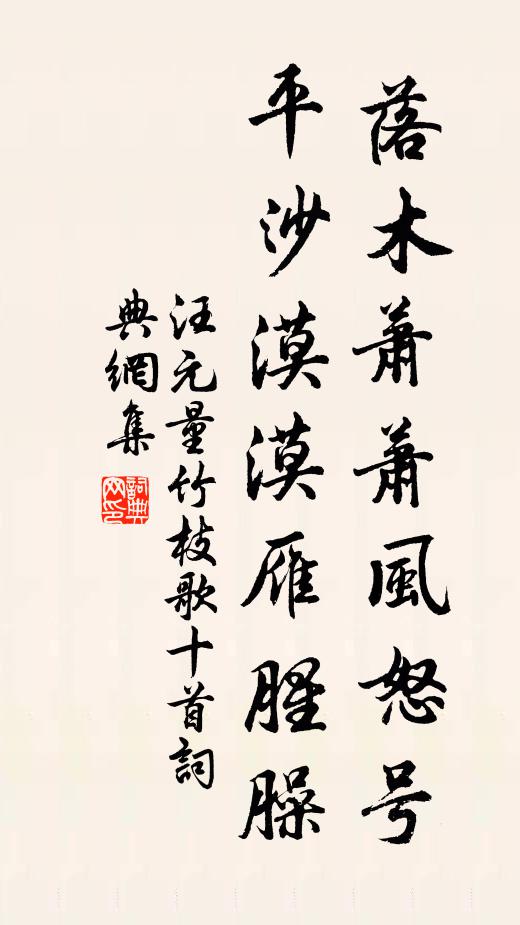 落木蕭蕭風怒号
平沙漠漠雁腥臊
汪元量竹枝歌十首詞
典網集
詞典网印